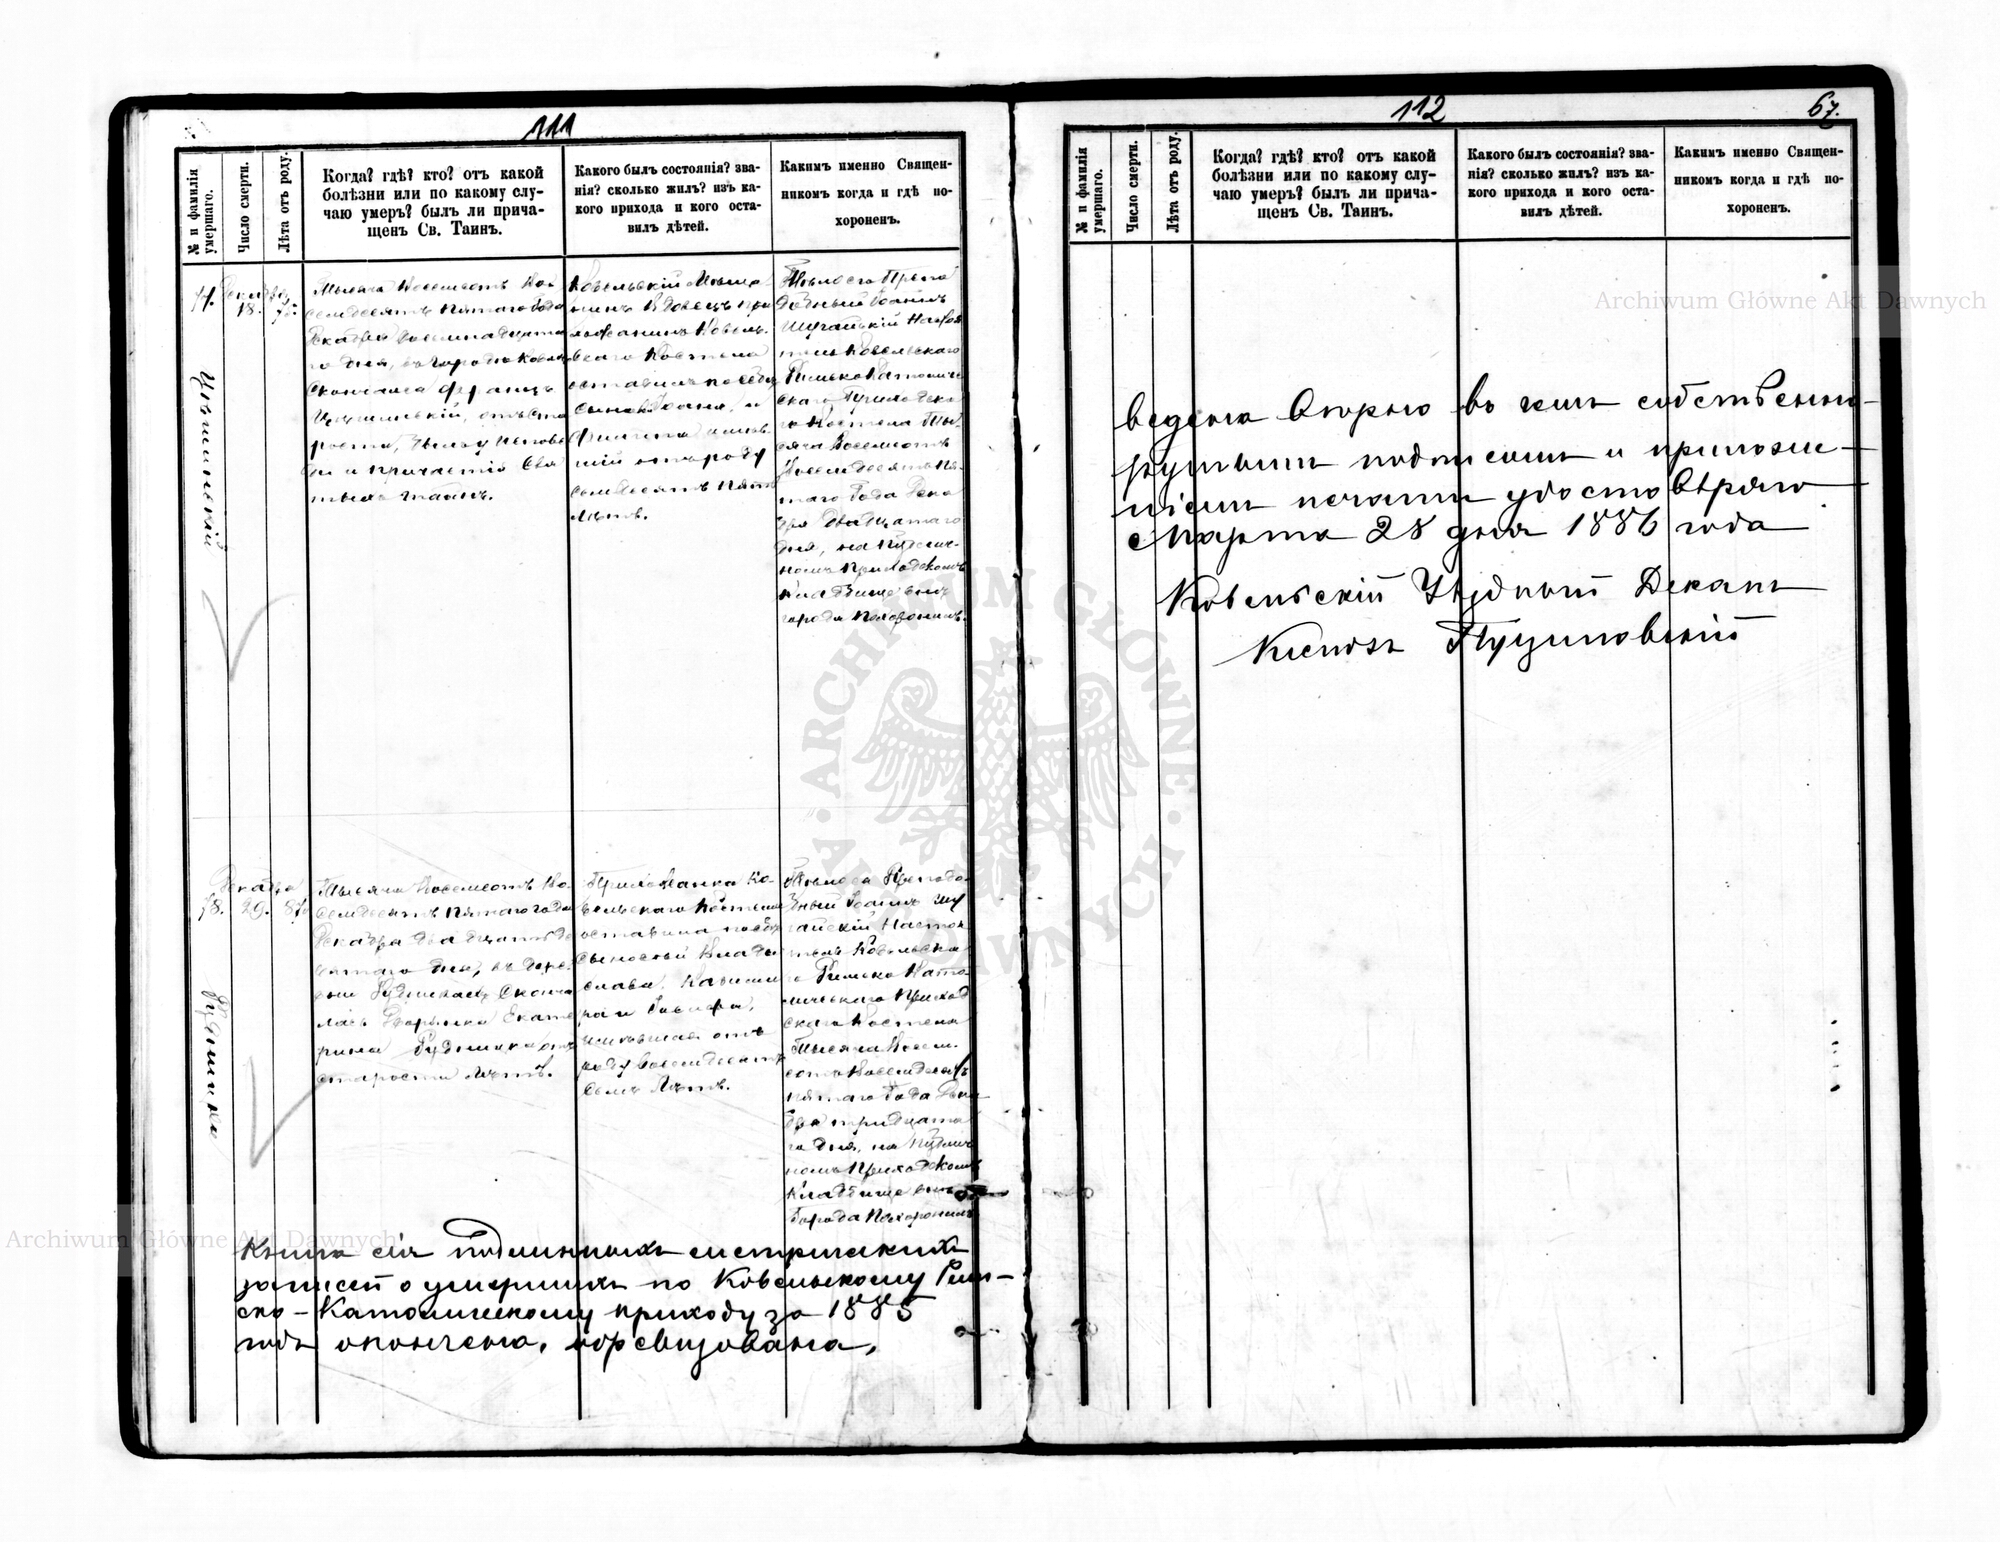 111
№ и фамилія умершаго.
Число смерти.
Лѣта отъ роду.
Когда? гдѣ? кто? отъ какой
болѣзни или по какому слу-
чаю умеръ? былъ ли прича-
щенъ Св. Таинъ.
Какого былъ состоянія? зва-
нія? сколько жилъ? изъ ка-
кого прихода и кого оста-
вилъ дѣтей.
Каким именно Священ-
никомъ когда и гдѣ по-
хороненъ.
Декабря
18.
Тысяча восемьсотъ во-
семдесятъ пятаго года
Декабря восемнадцата-
го дня, въ городѣ Ковлѣ
скончался Францъ
отъ ста-
рости,
святыхъ таинъ.
Ковельскій мѣща-
нинъ вдовецъ при-
хожанинъ Ковель-
скаго костела
оставилъ по себѣ
сыновъ
отъ роду
семдесятъ пять
лѣтъ.
Тѣло его Препо-
добный Іоаннъ
Настоя-
тель Ковельскаго
Римско Католиче-
скаго Приходска-
го костела Ты-
сяча восемсотъ
восемдесятъ пя-
таго года Декаб-
ря двадцатаго
дня, на публич-
номъ приходскомъ
кладбище внѣ
города похоронилъ.
78.
Декабря
29.
87
Тысяча восемсотъ во-
семдесятъ пятаго года
Декабря двадцать де-
вятаго дня, въ дерев-
сконча-
лась Дворянка Екате-
рина отъ
старости лѣтъ.
Прихожанка Ко-
вельскаго костела
оставила по себѣ
сыновей Влади-
слава, Казими-
ра и
жившая отъ
роду восемдесятъ
семь лѣтъ.
Тѣло ея Преподо-
бный Іоаннъ
Настоя-
тель Ковельска-
го Римско Като-
лическаго Приход-
скаго костела
Тысяча восем-
сотъ восемдесятъ
пятаго года Декаб-
ря тридцата-
го дня, на публич-
номъ приходскомъ
кладбище внѣ
города похоронилъ
Книга сія подлинныхъ метрическихъ
записей о умершихъ по Ковельскому Рим-
ско-Католическому приходу за 1885
годъ окончена, обревизована,
112
67.
№ и фамилія умершаго.
Число смерти.
Лѣта отъ роду.
Когда? гдѣ? кто? отъ какой
болѣзни или по какому слу-
чаю умеръ? былъ ли прича-
щенъ Св. Таинъ.
Какого былъ состоянія? зва-
нія? сколько жилъ? изъ ка-
кого прихода и кого оста-
вилъ дѣтей.
Каким именно Священ-
никомъ когда и гдѣ по-
хороненъ.
ведена вѣрно въ чемъ собственно-
ручнымъ подписомъ и приложе-
ніемъ печати удостовѣряю
Марта 28 дня 1886 года
Ковельскій Уѣздный Деканъ
Ксендзъ
Archiwum Główne Akt Dawnych
Archiwum Główne Akt Dawnych
ARCHIWUM GŁÓWNE AKT DAWNYCH